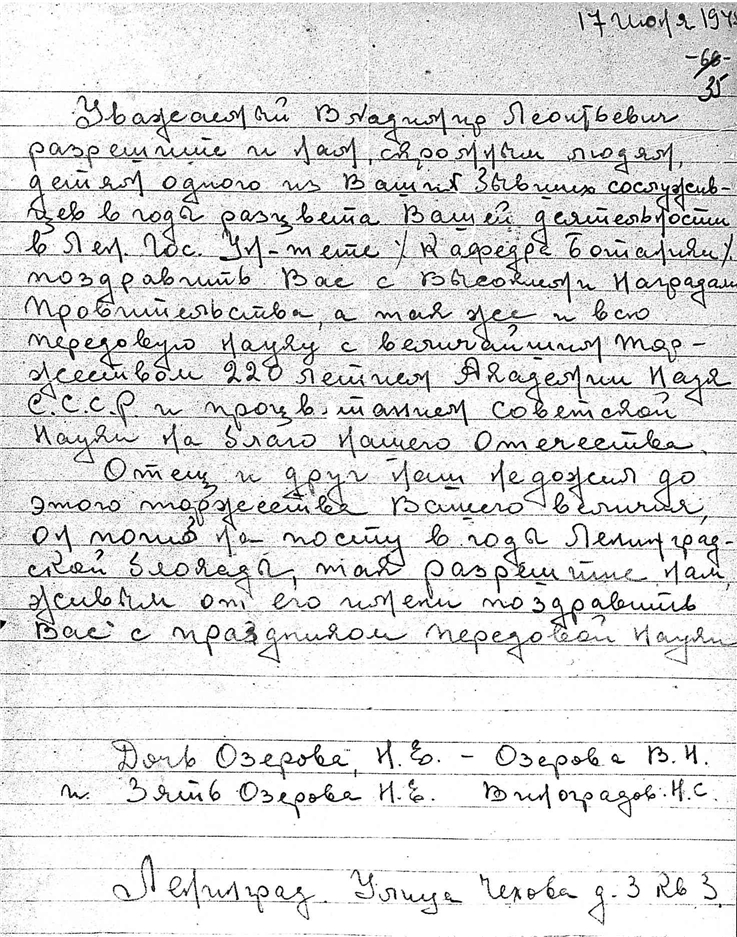 17 июля 194
-68-
35
Уважаемый Владимир Леонтьевич
разрешите и нам, скромным людям,
детям одного из Ваших бывших сослужив-
цев в годы разцвета Вашей деятельности
в Лен. Гос. Ун-тете /Кафедра Ботаники/
поздравить Вас с Высокими Наградами
Провительства, а так же и всю
передовую науку с величайшим тор-
жеством 220 летием Академии Наук
С.С.С.Р. и процв.танием советской
Науки на благо нашего Отечества.
Отец и друг наш недожил до
этого торжества Вашего величия,
он погиб на посту в годы Ленинград-
ской блокады, так разрешите нам,
живым от его имени поздравить
Вас с праздником передовой Науки
Дочь Озерова, Н.Е. - Озерова В.Н.
и Зять Озерова Н.Е. Виноградов.Н.С.
Ленинград. Улица Чехова д. 3 кв 3.